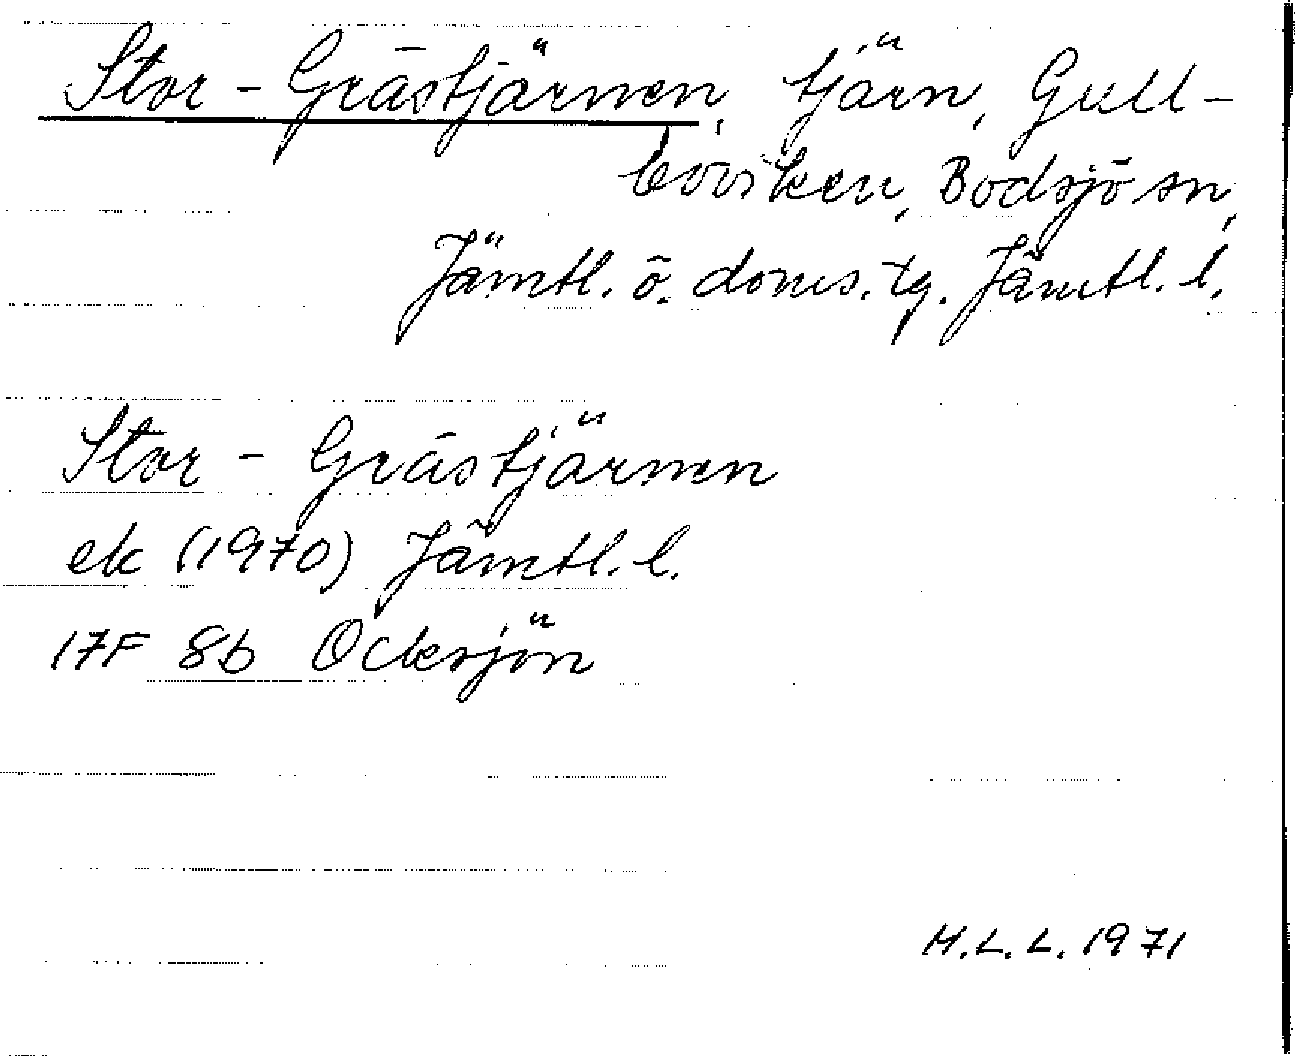 Stor-Grästjärnen, tjärn, Gull-
boviken, Bodsjö sn,
Jämtl. ö. doms. tg. Jämtl. l.
Stor-Grästjärnen
ek (1970) Jämtl. l.
17F 8b Ocksjön
H.L.L. 1971